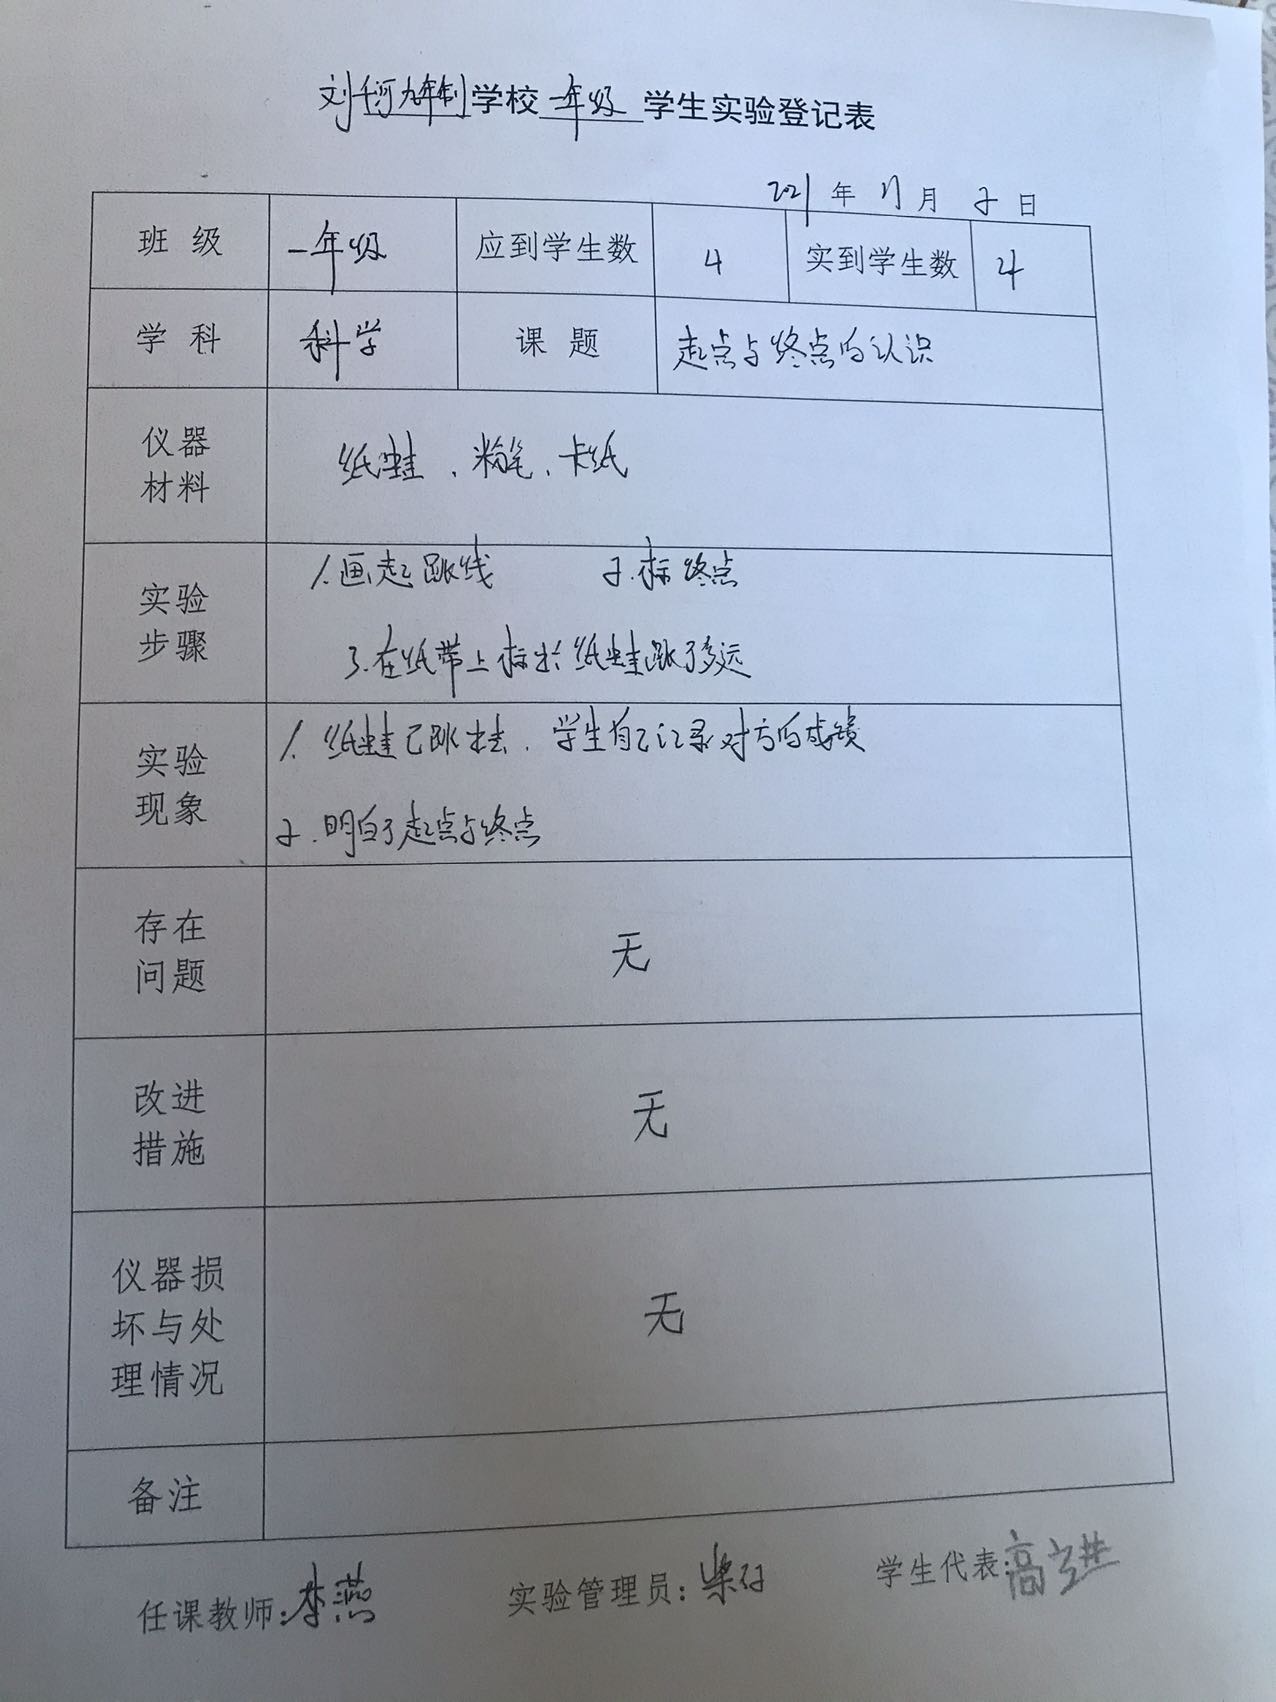 刘千河九年制学校一年级学生实验登记表
2021年11月2日
班级 一年级 应到学生数 4 实到学生数 4
学科 科学 课题 起点与终点的认识
仪器材料 纸蛙、粉笔、卡纸
实验步骤 1.画起跳线 2.标终点
3.在纸带上标出纸蛙跳了多远
实验现象 1.纸蛙已跳出去,学生自己记录对方的成绩
2.明白了起点与终点
存在问题 无
改进措施 无
仪器损坏与处理情况 无
备注
任课教师:李燕 实验管理员:柴 学生代表:高